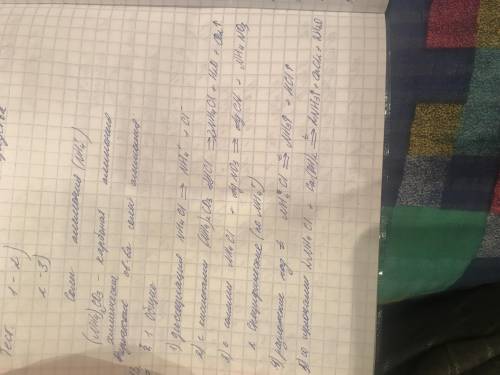 Тест 1 - 2)
2 - 3)
Соли аммония (NH₄⁺)
(NH₄)₂CO₃ - карбонат аммония
Химические св-ва соли аммония
1 Общие
1) диссоциация NH₄Cl ⇄ NH₄⁺ + Cl⁻
2) с кислотами (NH₄)₂CO₃ + 2HCl ⇒ 2NH₄Cl + H₂O + CO₂↑
3) с солями NH₄Cl + AgNO₃ ⇒ AgCl↓ + NH₄NO₃
2. Специфические (по NH₄⁺)
1) разложение под t NH₄Cl ⇒ NH₃↑ + HCl↑
2) с щелочами 2NH₄Cl + Ca(OH)₂ ⇒ 2NH₃↑ + CaCl₂ + 2H₂O